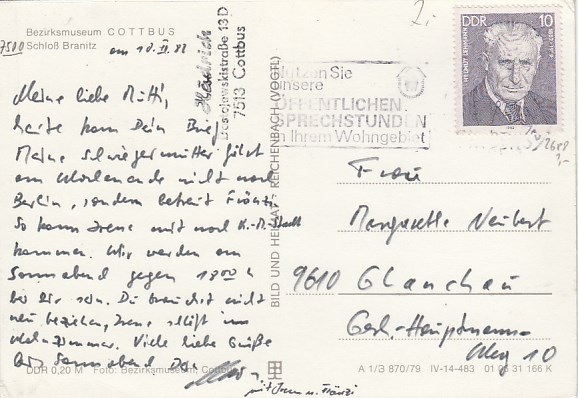 Bezirksmuseum COTTBUS
7500 Schloß Branitz
am 10.II.82
Meine liebe Mutti,
heute kam Dein Brief.
Meine Schwiegermutter fährt
am Wochenende nicht nach
Berlin, sondern betreut Fränzi
So kann Irene mit nach K.-M.-Stadt
kommen. Wir werden am
Sonnabend gegen 18 00 h
bei Dir sein. Du brauchst nicht
neu beziehen, Irene schläft im
Wohnzimmer. Viele liebe Grüße
bis Sonnabend Dein
mit Irene u. Fränzi
DDR 0,20 M Foto: Bezirksmuseum, Cottbus
Dostojewskistraße 13 D
7513 Cottbus
BILD UND HEIMAT · REICHENBACH (VOGTL)
Nutzen Sie
unsere
ÖFFENTLICHEN
SPRECHSTUNDEN
in Ihrem Wohngebiet
DDR 10
HELMUT LEHMANN
Frau
Margarethe Neubert
9610 Glauchau
Gerh.-Hauptmann-
Weg 10
A 1/3 870/79 IV-14-483 01 06 31 166 K